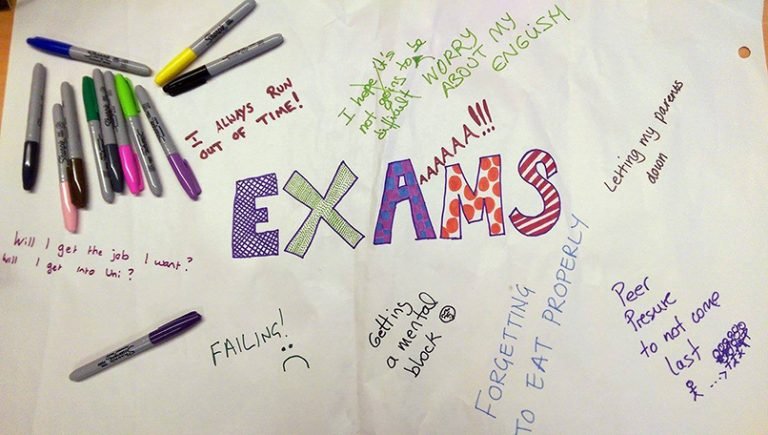 I hope it's
not going to be
difficult
WORRY
ABOUT MY
ENGLISH
I ALWAYS RUN
OUT OF TIME!
AAAAAA!!!
EXAMS
Letting my parents
down
Will I get the job I want?
Will I get into Uni?
FAILING!
Getting
a mental
block
FORGETTING
TO EAT PROPERLY
Peer
Presure
to not come
last